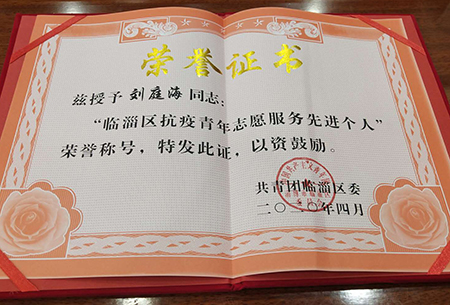 荣誉证书
兹授予刘庭海同志：
“临淄区抗疫青年志愿服务先进个人”
荣誉称号，特发此证，以资鼓励。
共青团临淄区委
二〇二〇年四月